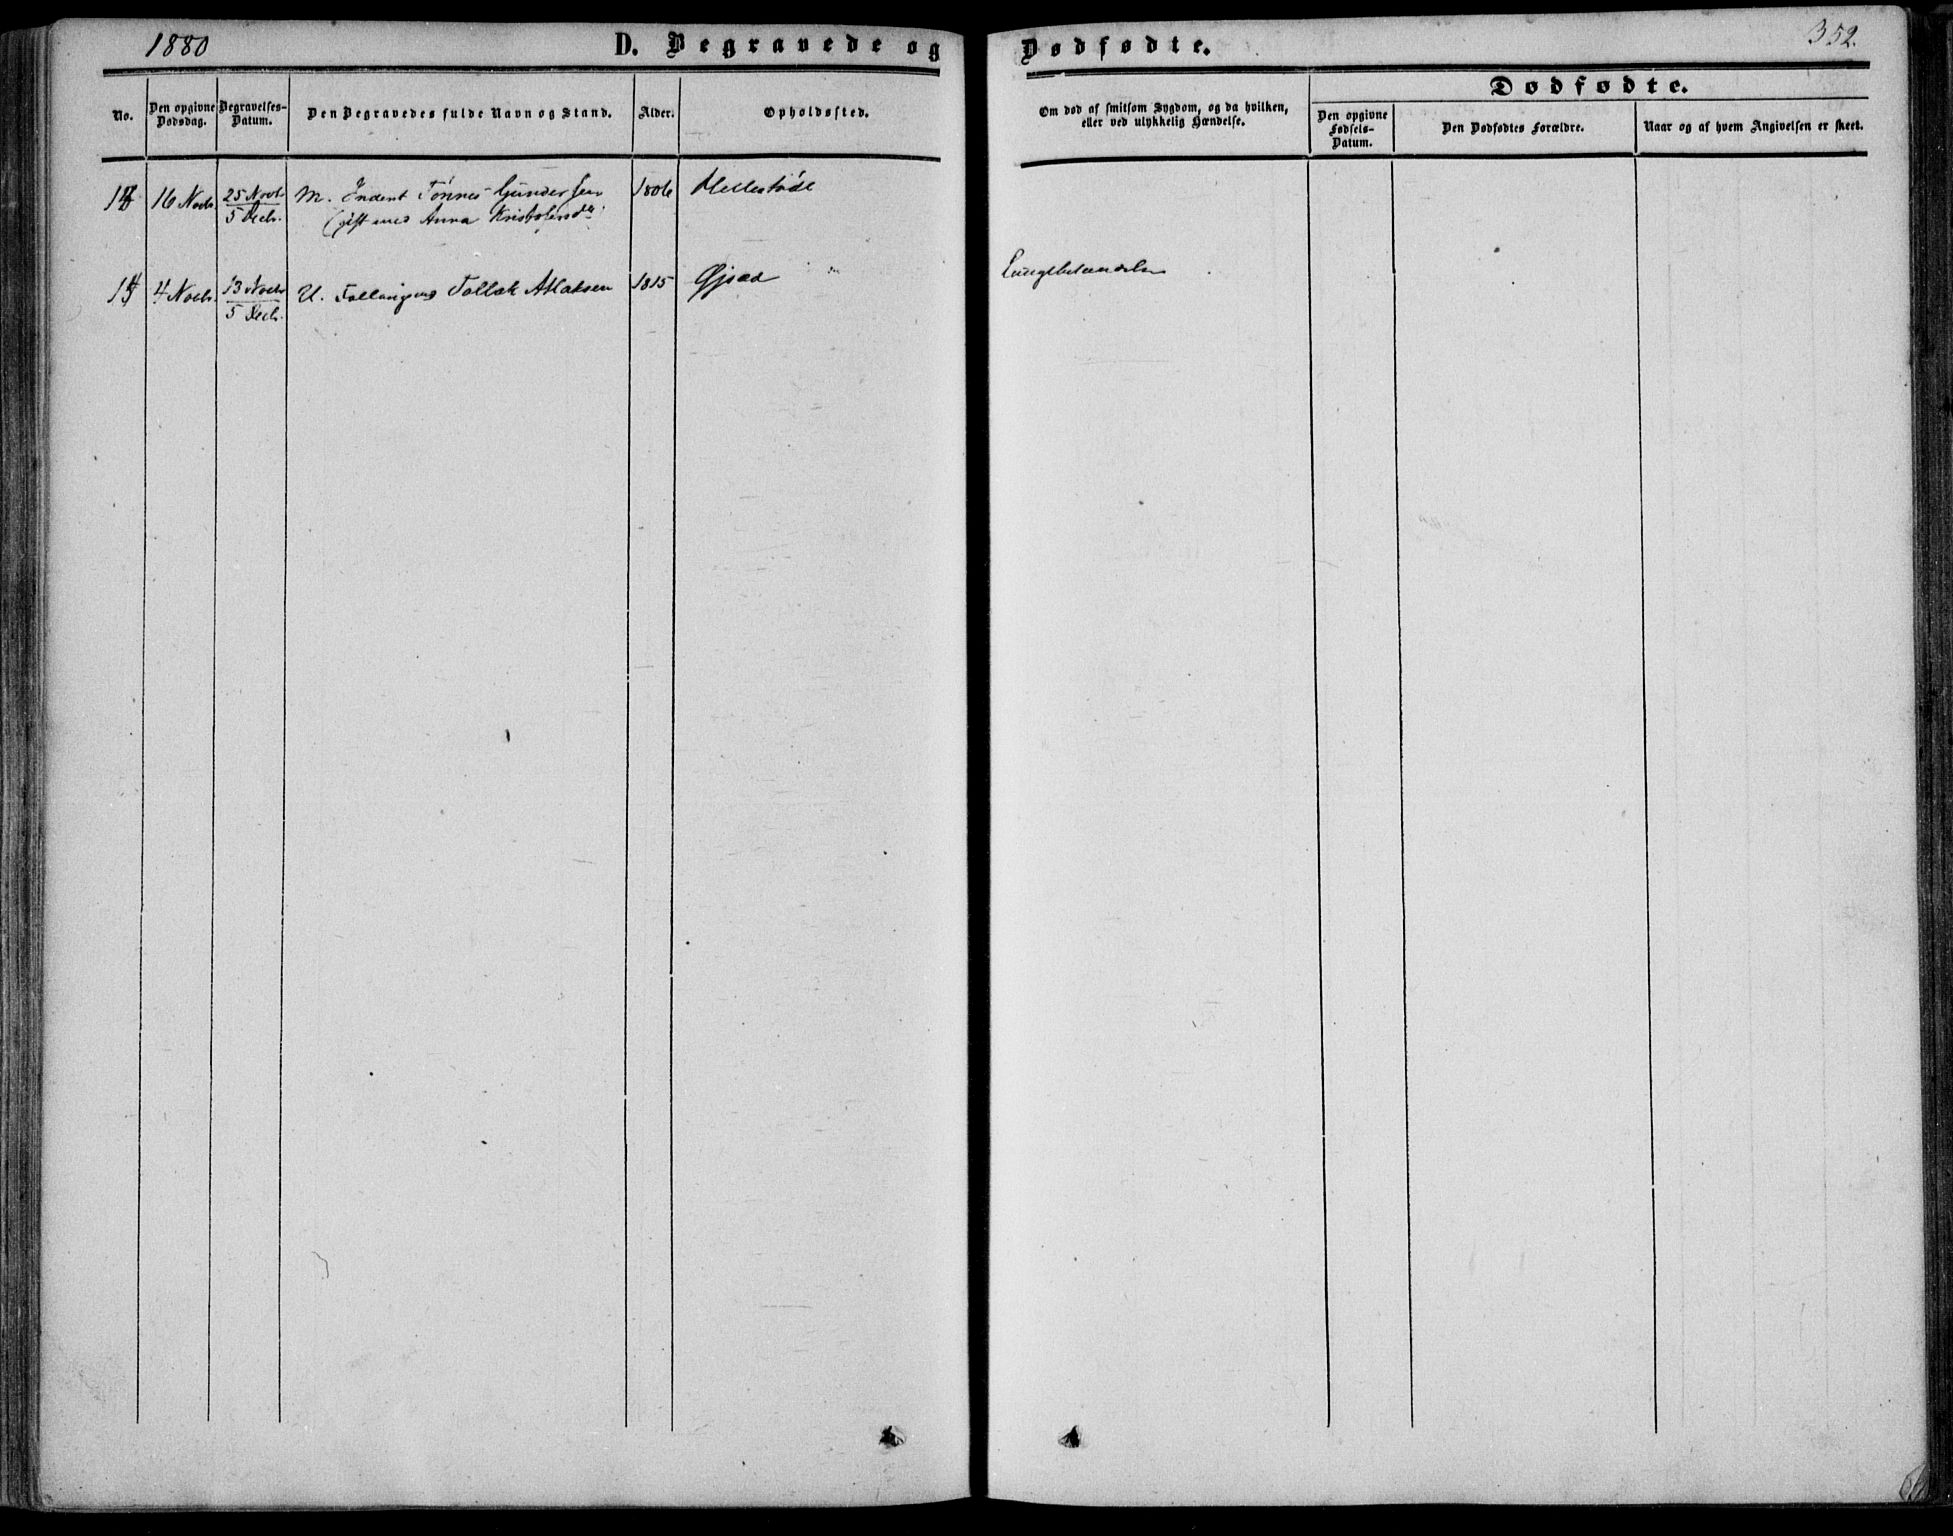 1880
D. Begravede og Dødfødte.
352.
No.
Den opgivne Dødsdag.
Begravelses-Datum.
Den Begravedes fulde Navn og Stand.
Alder.
Opholdssted.
Om død af smitsom Sygdom, og da hvilken,
eller ved ulykkelig Hændelse.
Dødfødte.
Den opgivne Fødsels-Datum.
Den Dødfødtes Forældre.
Naar og af hvem Angivelsen er skeet.
16 Novb. 25 Novb. M. Inderst Tønnes Gundersen 1806
5 Decb. (gift med Anna
4 Novb. 13 Novb. U. Tollak Aslaksen 1815 Gjsæd
5 Decb.
Lungebetændelse